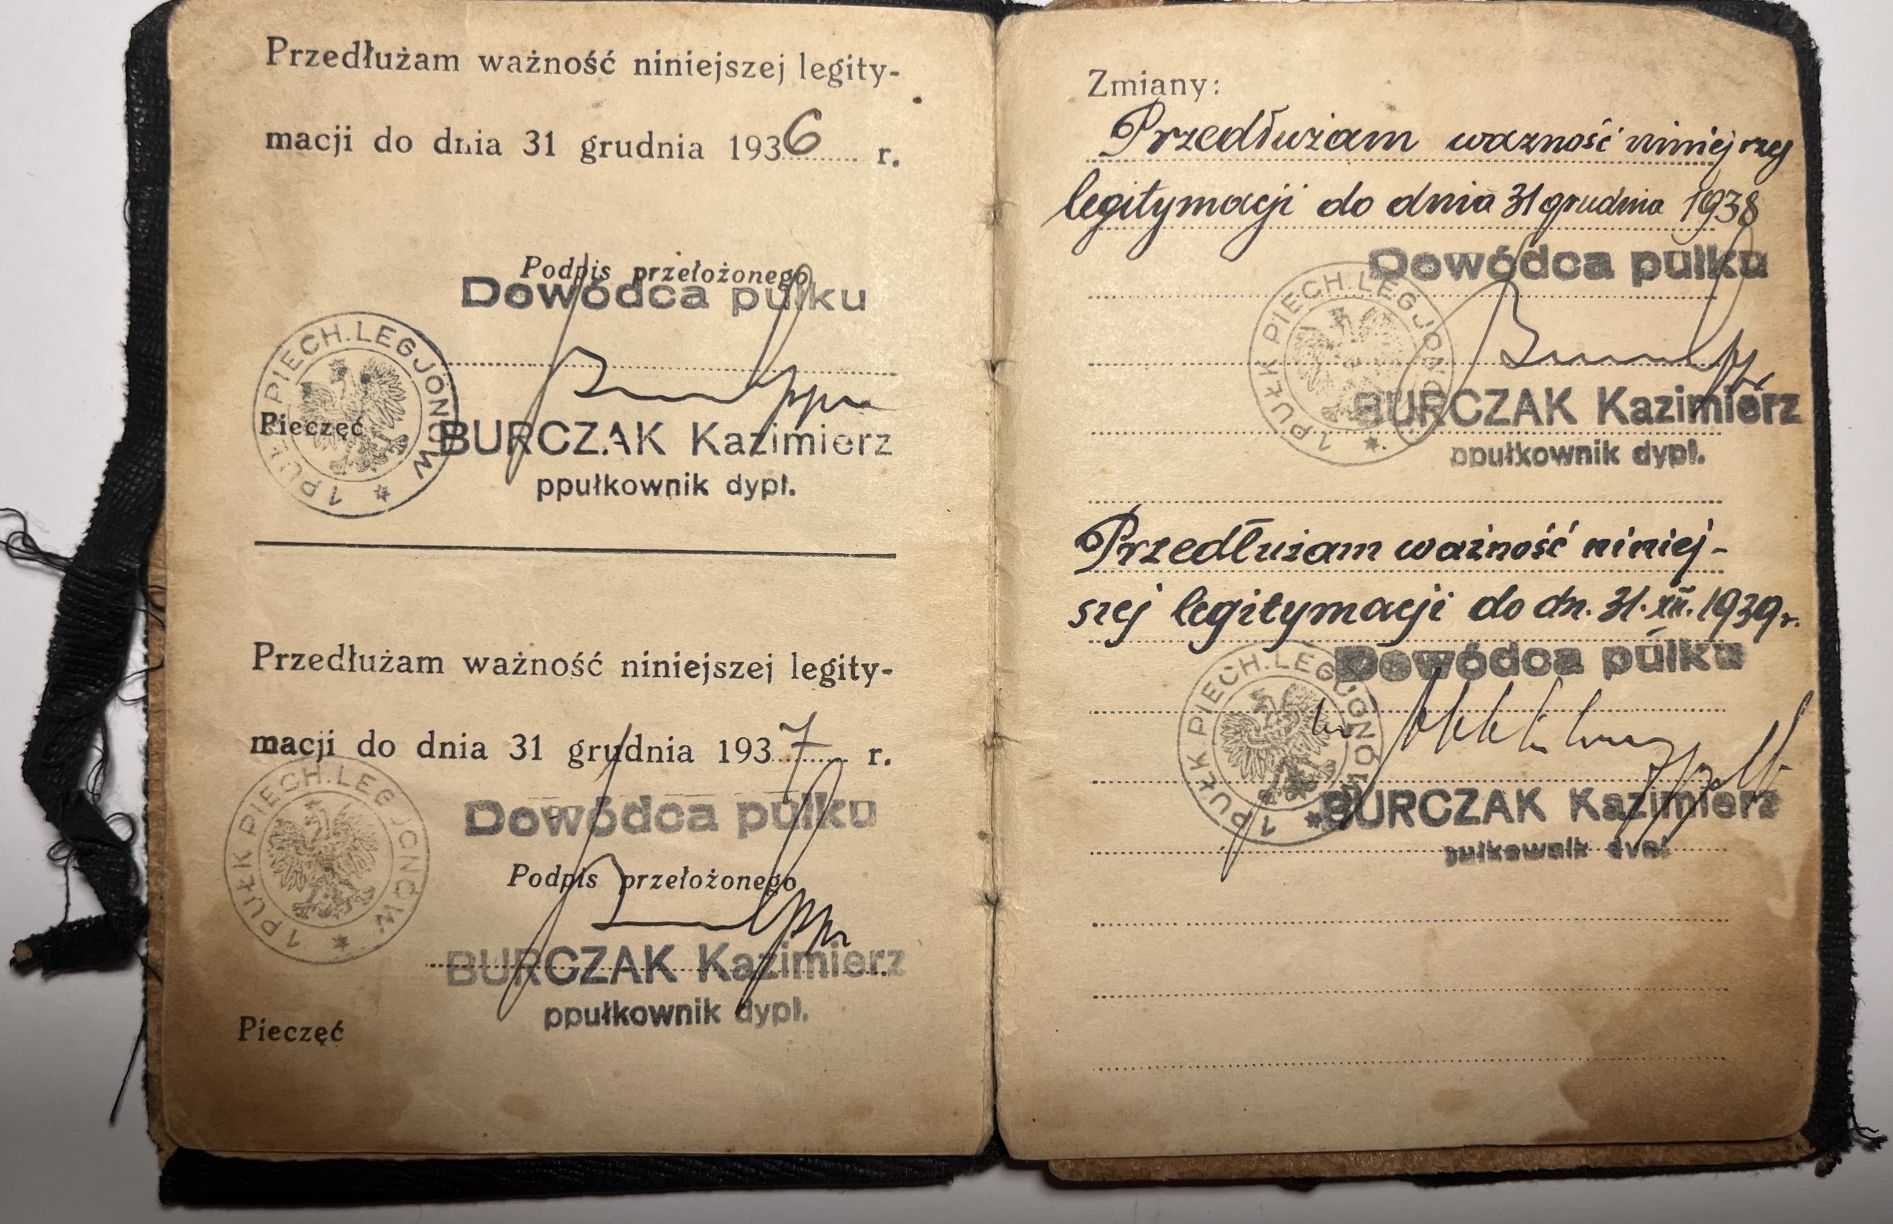 Przedłużam ważność niniejszej legity-
macji do dnia 31 grudnia 1936 r.
Podpis przełożonego
Dowódca pułku
1 PUŁK PIECH. LEGJONÓW
Pieczęć
BURCZAK Kazimierz
ppułkownik dypl.
Przedłużam ważność niniejszej legity-
macji do dnia 31 grudnia 1937 r.
Dowódca pułku
1 PUŁK PIECH. LEGJONÓW
Podpis przełożonego
BURCZAK Kazimierz
ppułkownik dypl.
Pieczęć
Zmiany:
Przedłużam ważność niniejszej
legitymacji do dnia 31 grudnia 1938
Dowódca pułku
1 PUŁK PIECH. LEGJONÓW
BURCZAK Kazimierz
ppułkownik dypl.
Przedłużam ważność niniej-
szej legitymacji do dn. 31. XII. 1939 r.
Dowódca pułku
1 PUŁK PIECH. LEGJONÓW
BURCZAK Kazimierz
pułkownik dypl